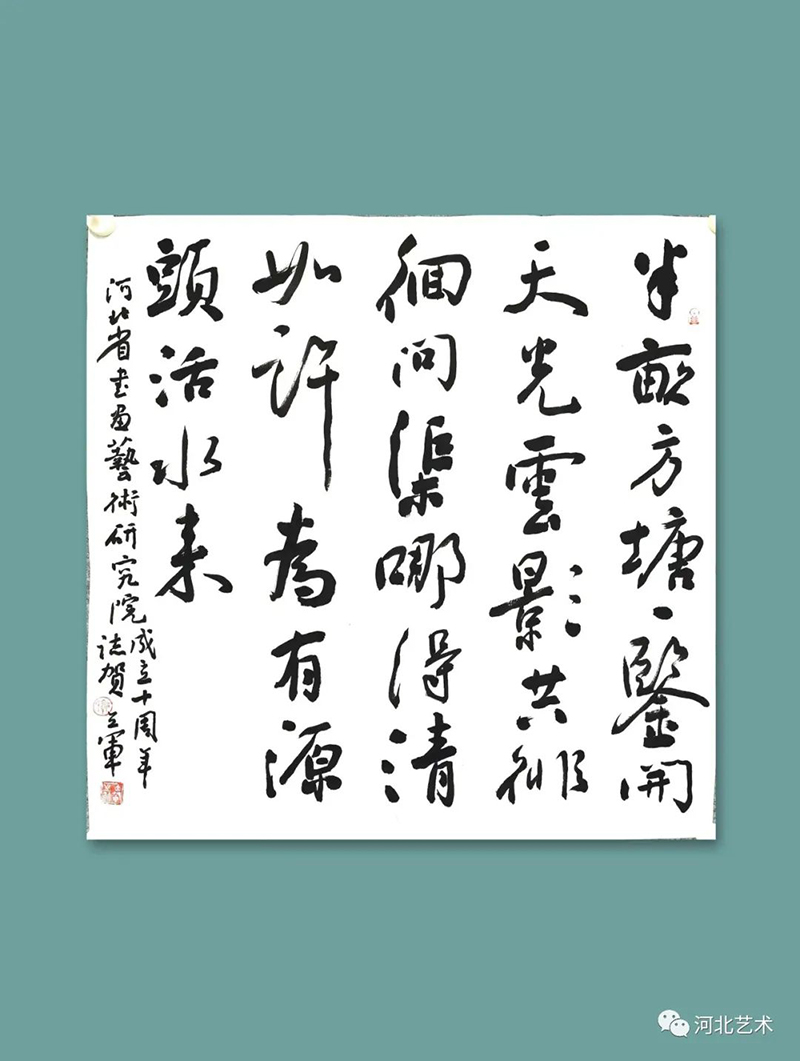 半畝方塘一鑒開
天光雲影共徘
徊問渠哪得清
如許為有源
頭活水来
河北省书画藝術研究院成立十周年
誌賀 立軍
河北艺术